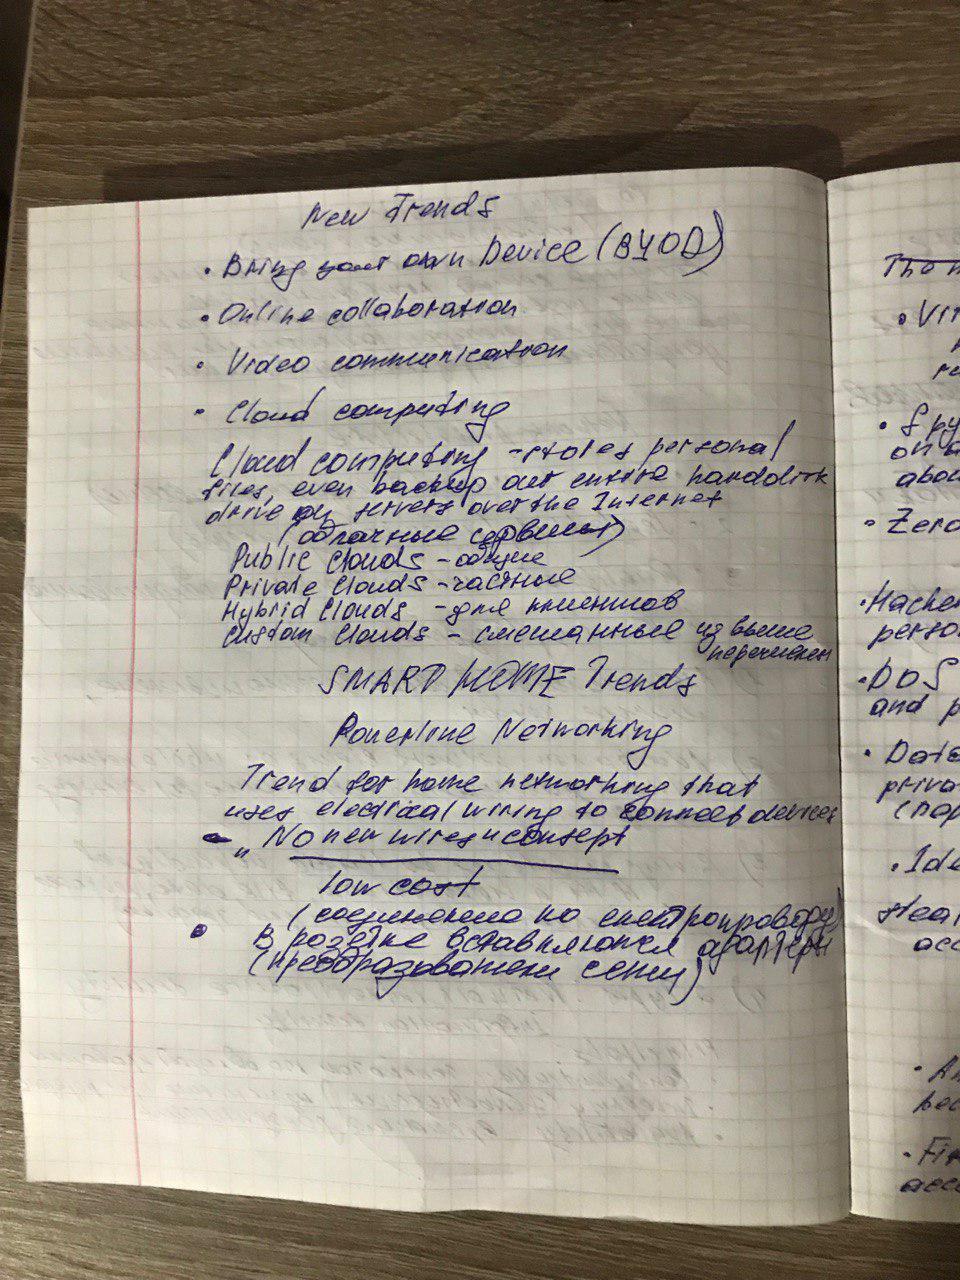 New Trends
• Bring your own Device (BYOD)
• Online collaboration
• Video communication
• Cloud computing
Cloud computing - stores personal
files, even backup out entire harddisk
drive on servers over the Internet
(облачные сервисы)
Public Clouds - общие
Private Clouds - частные
Hybrid Clouds - для клиентов
Custom Clouds - смешанные из выше
перечислен
SMART HOME Trends
Powerline Networking
Trend for home networking that
uses electrical wiring to connect devices
- „No new wires" consept
low cost
(соединено по электропроводу)
• В розетке вставляются адаптеры
(преобразователи сети)
• Vir
• Spy
on a
abou
• Zero
• Hacker
perso
• DOS
and p
• Data
priva
• Ide
acc
bec
• Fir
acce